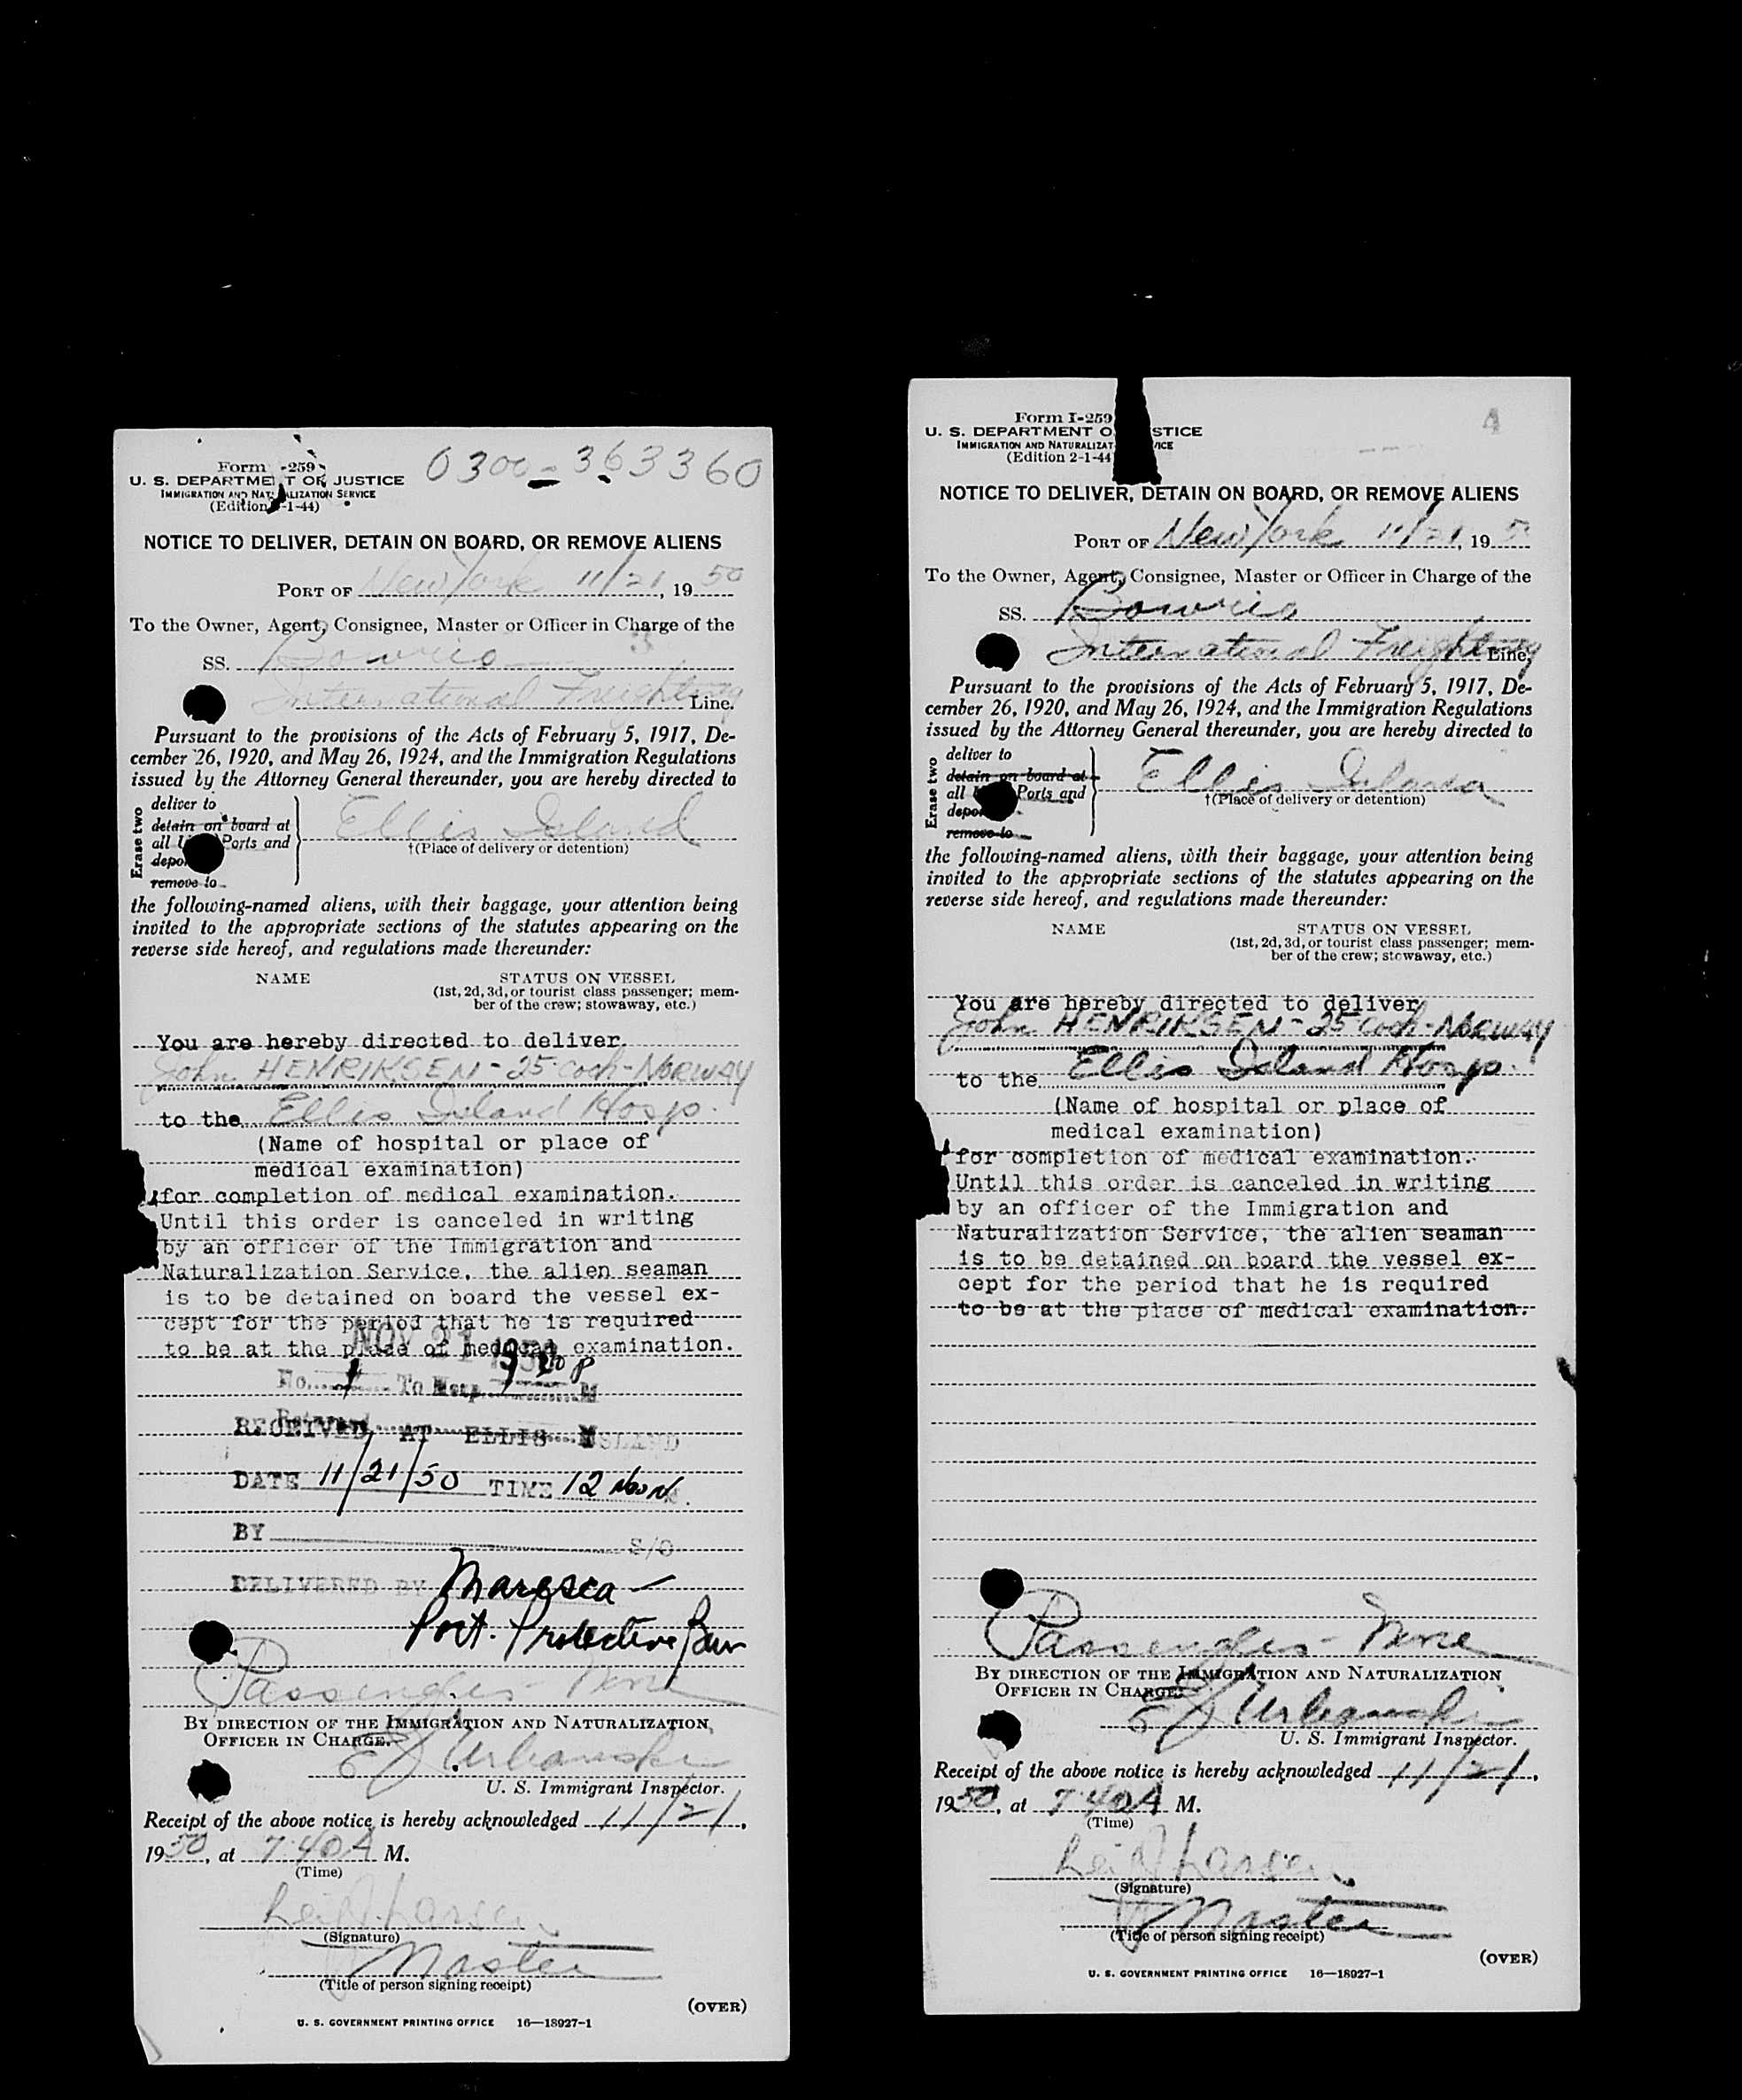 Form -259
U. S. DEPARTMENT OF JUSTICE
IMMIGRATION AND NATURALIZATION SERVICE
(Edition -1-44)
0300-363360
NOTICE TO DELIVER, DETAIN ON BOARD, OR REMOVE ALIENS
PORT OF New York 11/21, 19 50
To the Owner, Agent, Consignee, Master or Officer in Charge of the
SS.
International Freighting Line.
Pursuant to the provisions of the Acts of February 5, 1917, De-
cember 26, 1920, and May 26, 1924, and the Immigration Regulations
issued by the Attorney General thereunder, you are hereby directed to
Erase two
deliver to
detain on board at
all Ports and
depo
remove to
Ellis Island
†(Place of delivery or detention)
the following-named aliens, with their baggage, your attention being
invited to the appropriate sections of the statutes appearing on the
reverse side hereof, and regulations made thereunder:
NAME STATUS ON VESSEL
(1st, 2d, 3d, or tourist class passenger; mem-
ber of the crew; stowaway, etc.)
You are hereby directed to deliver
John HENRIKSEN - 25 - NORWAY
to the Ellis Island Hosp.
(Name of hospital or place of
medical examination)
for completion of medical examination.
Until this order is canceled in writing
by an officer of the Immigration and
Naturalization Service, the alien seaman
is to be detained on board the vessel ex-
cept for the period that he is required
to be at the place of medical examination.
NOV 21
No. 1 To Hosp.
RECEIVED AT ELLIS ISLAND
DATE 11/21/50 TIME 12 Noon
BY S/O
DELIVERED BY Maresca
Port. Protective Bur
Passengers - Nine
BY DIRECTION OF THE IMMIGRATION AND NATURALIZATION
OFFICER IN CHARGE.
E J Urbanski
U. S. Immigrant Inspector.
Receipt of the above notice is hereby acknowledged 11/21,
1950, at 7:40 A M.
(Time)
Leif Larsen
(Signature)
Master
(Title of person signing receipt)
(OVER)
U. S. GOVERNMENT PRINTING OFFICE 16—18927-1
Form I-259
U. S. DEPARTMENT O STICE
IMMIGRATION AND NATURALIZAT VICE
(Edition 2-1-44
4
NOTICE TO DELIVER, DETAIN ON BOARD, OR REMOVE ALIENS
PORT OF New York 11/21, 19 5
To the Owner, Agent, Consignee, Master or Officer in Charge of the
SS.
International Freighting Line
Pursuant to the provisions of the Acts of February 5, 1917, De-
cember 26, 1920, and May 26, 1924, and the Immigration Regulations
issued by the Attorney General thereunder, you are hereby directed to
Erase two
deliver to
detain on board at
all Ports and
depo
remove to
Ellis Island
†(Place of delivery or detention)
the following-named aliens, with their baggage, your attention being
invited to the appropriate sections of the statutes appearing on the
reverse side hereof, and regulations made thereunder:
NAME STATUS ON VESSEL
(1st, 2d, 3d, or tourist class passenger; mem-
ber of the crew; stowaway, etc.)
You are hereby directed to deliver
John HENRIKSEN - 25 - NORWAY
to the Ellis Island Hosp.
(Name of hospital or place of
medical examination)
for completion of medical examination.
Until this order is canceled in writing
by an officer of the Immigration and
Naturalization Service, the alien seaman
is to be detained on board the vessel ex-
cept for the period that he is required
to be at the place of medical examination.
Passengers - Nine
BY DIRECTION OF THE IMMIGRATION AND NATURALIZATION
OFFICER IN CHARGE.
E J Urbanski
U. S. Immigrant Inspector.
Receipt of the above notice is hereby acknowledged 11/21,
1950, at 7:40 A M.
(Time)
Leif Larsen
(Signature)
Master
(Title of person signing receipt)
(OVER)
U. S. GOVERNMENT PRINTING OFFICE 16—18927-1